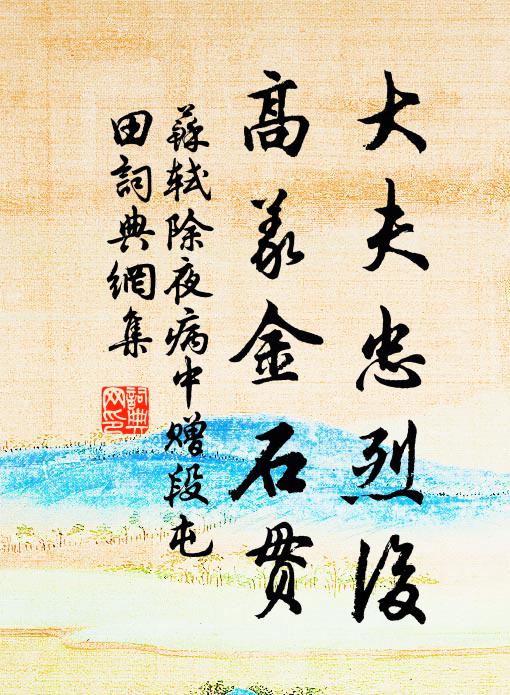 大夫忠烈後
高義金石貫
蘇軾除夜病中贈段屯
田詞典網集
詞典網印